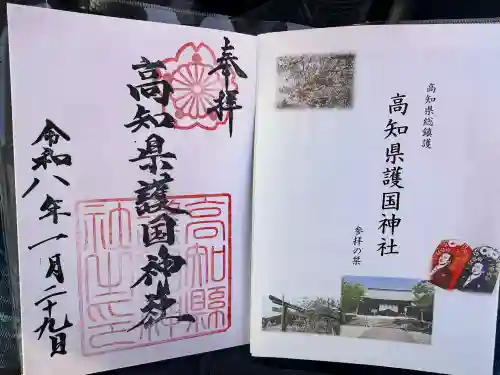 奉拝
高知県護国神社
令和八年一月二十九日
高知縣
社之印
高知県総鎮護
高知県護国神社
参拝の栞